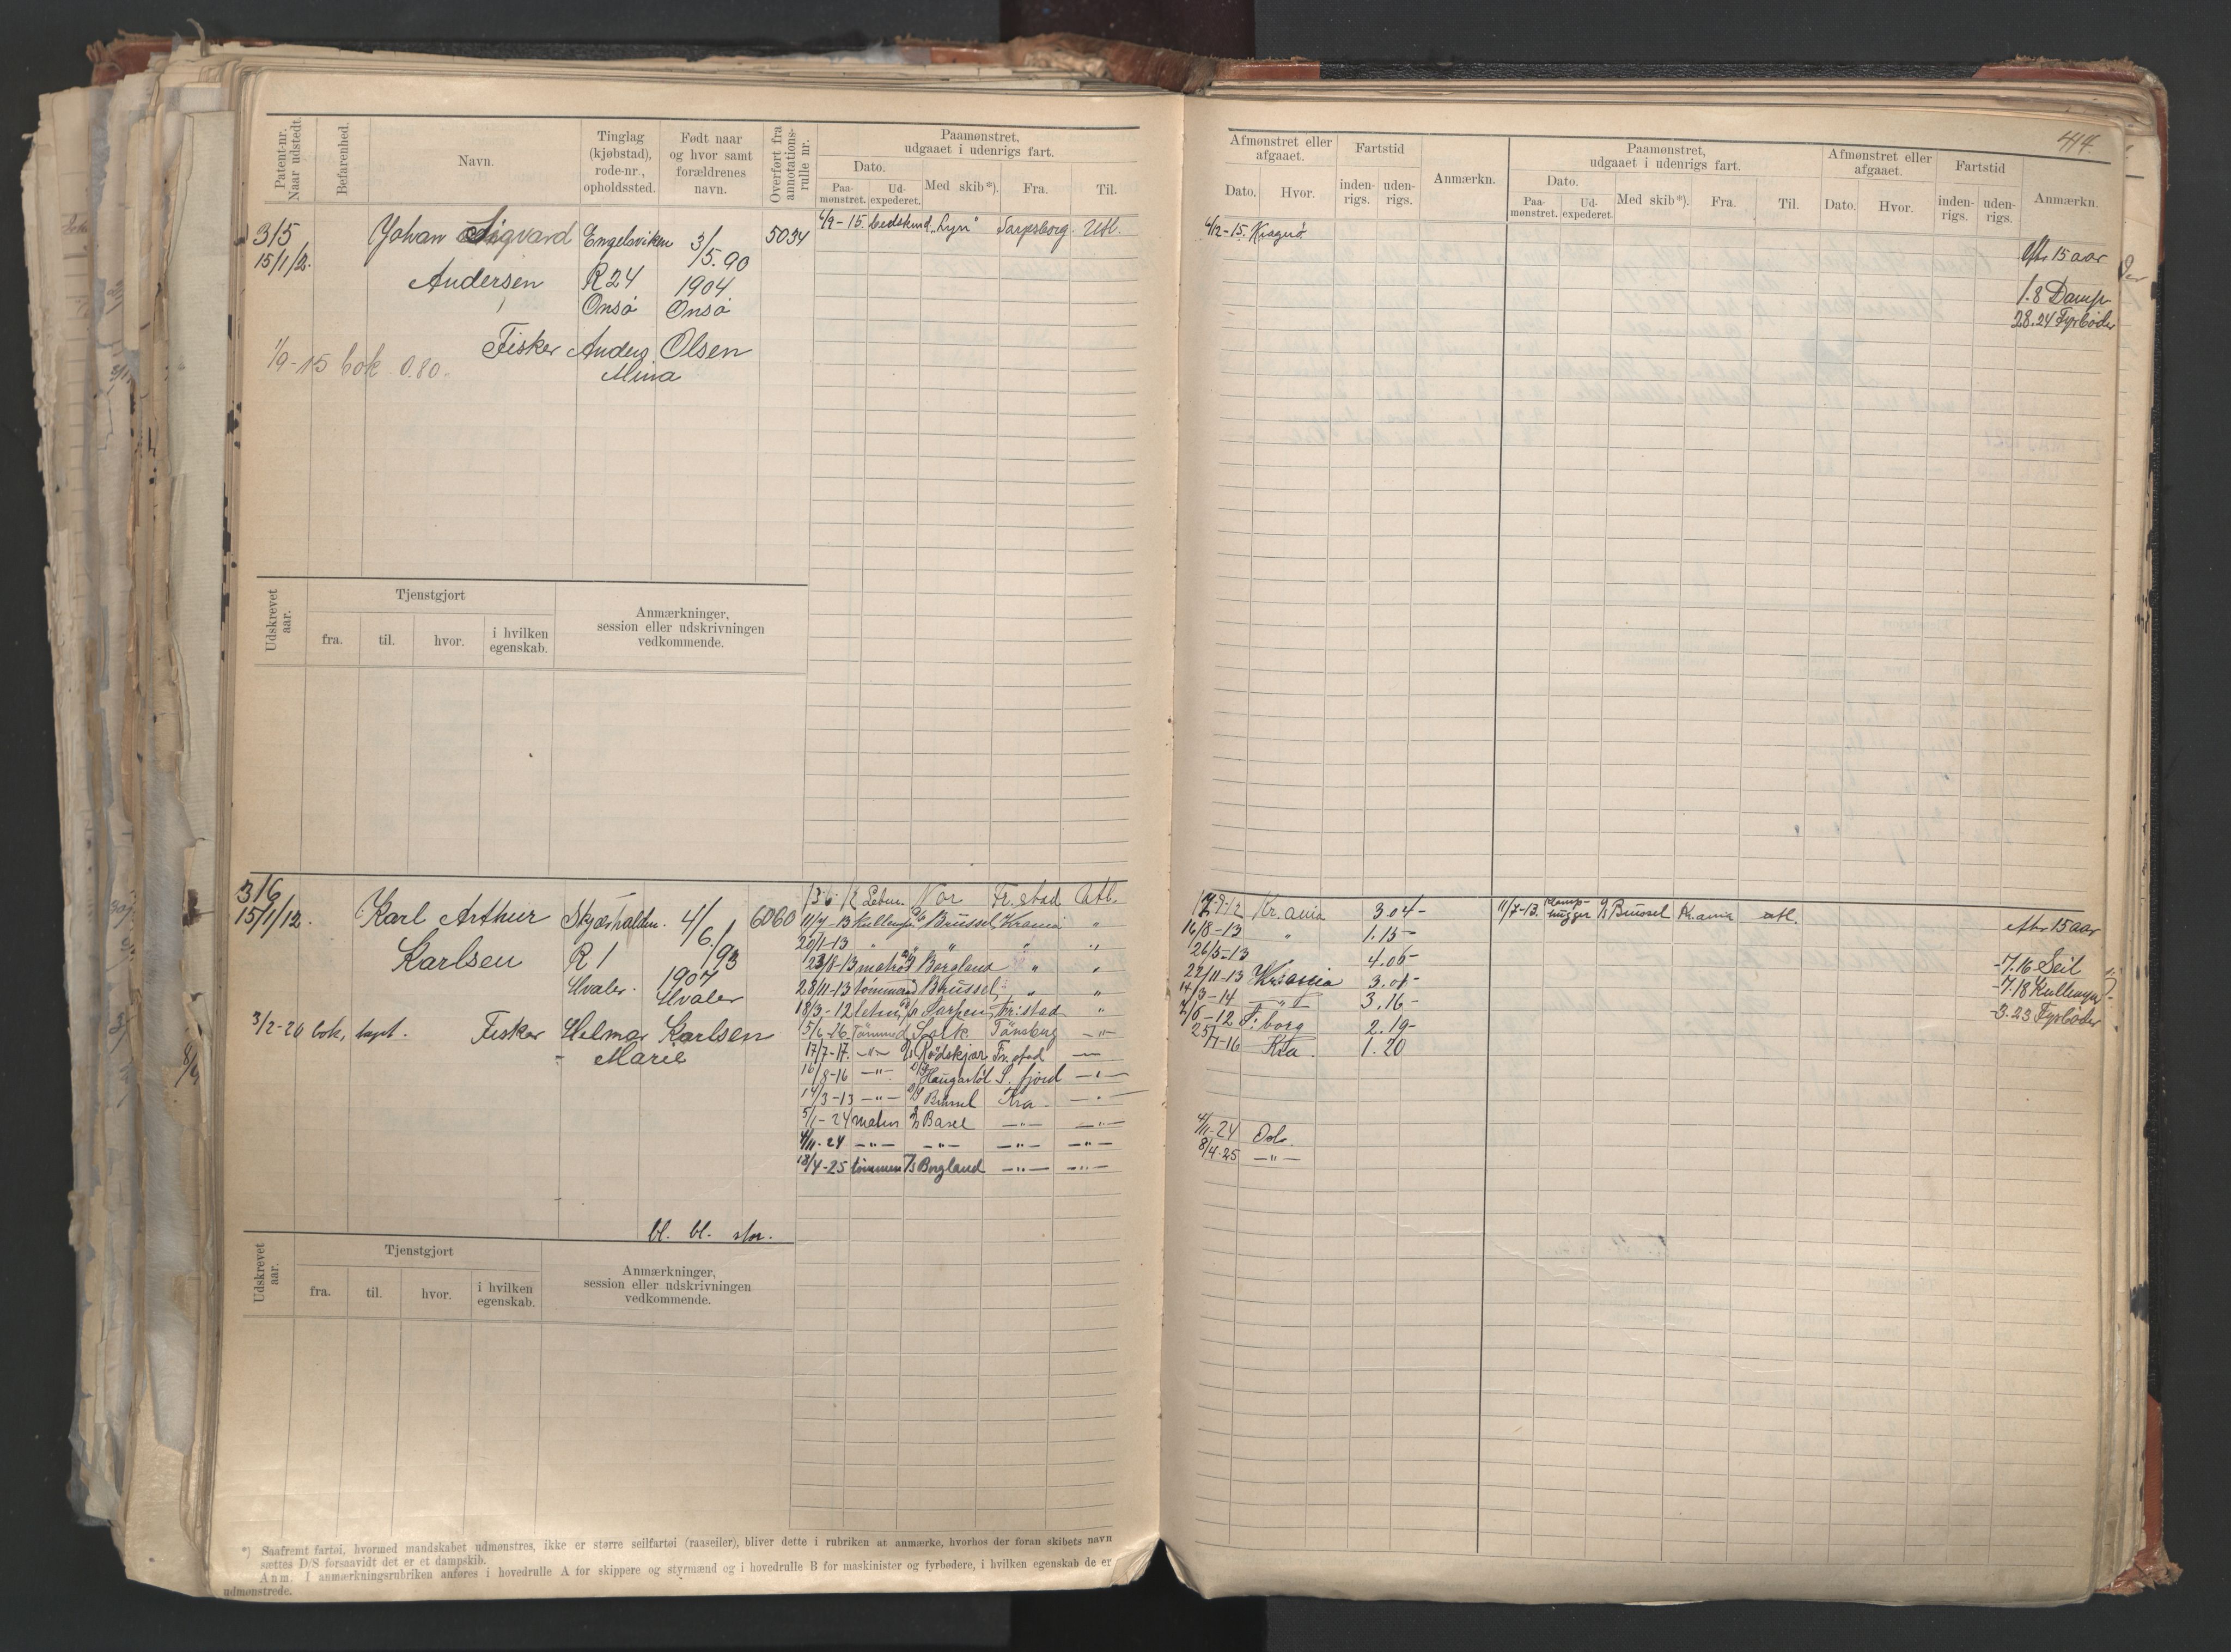 Patent-nr. Naar udstedt.
Befarenhed.
Navn.
Tinglag (kjøbstad), rode-nr., opholdssted.
Født naar og hvor samt forældrenes navn.
Overført fra annotations-rulle nr.
Paamønstret, udgaaet i udenrigs fart.
Dato.
Paa-mønstret.
Ud-expederet.
Med skib*).
Fra.
Til.
315
15/1/12.
Johan Sigvard
Andersen
Engelsviken
R 24
Onsø
3/5.90
1904
Onsø
5034
Fisker Anders Olsen
Mina
1/9-15 bok 0.80.
4/9-15. "Lyn" Sarpsborg. Utl.
Udskrevet aar.
Tjenstgjort
fra.
til.
hvor.
i hvilken egenskab.
Anmærkninger, session eller udskrivningen vedkommende.
316
15/1/12.
Karl Arthur
Karlsen
Skjærhalden.
R 1
Hvaler.
4/6/93
1907
Hvaler
6060
3/2-20 bok, tapt.
Fisker Helmar Karlsen
- Marie
Nor Fr.stad Utl.
11/7-13 Brüssel Krania "
20/1-13 " " " "
23/8-13 matros Borgland " "
28/11-13 tømmerm Brüssel " "
18/3-12 Sarpen Fr:stad "
5/6-16 Tømmerd Tønsberg -"-
17/7-17. -"- Rødskjær Fr.stad -"-
16/8-16 -"- Haugastøl S. fjord -"-
14/3-13 -"- Brüssel Kra -"-
5/1-24 matros D/S Basel -"- -"-
4/11-24 -"- -"- -"- -"-
18/4-25 tømmerm D/S Borgland -"- -"-
bl. bl. stor.
Udskrevet aar.
Tjenstgjort
fra.
til.
hvor.
i hvilken egenskab.
Anmærkninger, session eller udskrivningen vedkommende.
*) Saafremt fartøi, hvormed mandskabet udmønstres, ikke er større seilfartøi (raaseiler), bliver dette i rubriken at anmærke, hvorhos der foran skibets navn
sættes D/S forsaavidt det er et dampskib.
Anm. I anmærkningsrubriken anføres i hovedrulle A for skippere og styrmænd og i hovedrulle B for maskinister og fyrbødere, i hvilken egenskab de er
udmønstrede.
414.
Afmønstret eller afgaaet.
Dato.
Hvor.
Fartstid
inden-rigs.
uden-rigs.
Anmærkn.
Paamønstret, udgaaet i udenrigs fart.
Dato.
Paa-mønstret.
Ud-expederet.
Med skib*).
Fra.
Til.
Afmønstret eller afgaaet.
Dato.
Hvor.
Fartstid
inden-rigs.
uden-rigs.
Anmærkn.
4/12-15. Kragerø
eftr 15 aar
1.8 Damp
28.24 Fyrbøder
Kr.ania 3.04-
16/8-13 " 1.15-
26/5-13 4.06-
22/11-13 Krania 3.01-
14/3-14 -"- 3.16-
2/6-12 F:borg 2.19-
25/7-16 Kra. 1.20
4/11-24 Oslo.
8/4-25 -"-
11/7-13. D/S Brüssel Kr.ania utl.
eftr 15 aar
-7.16 Seil
-7.18 Kullemp
-3.23 Fyrbøder